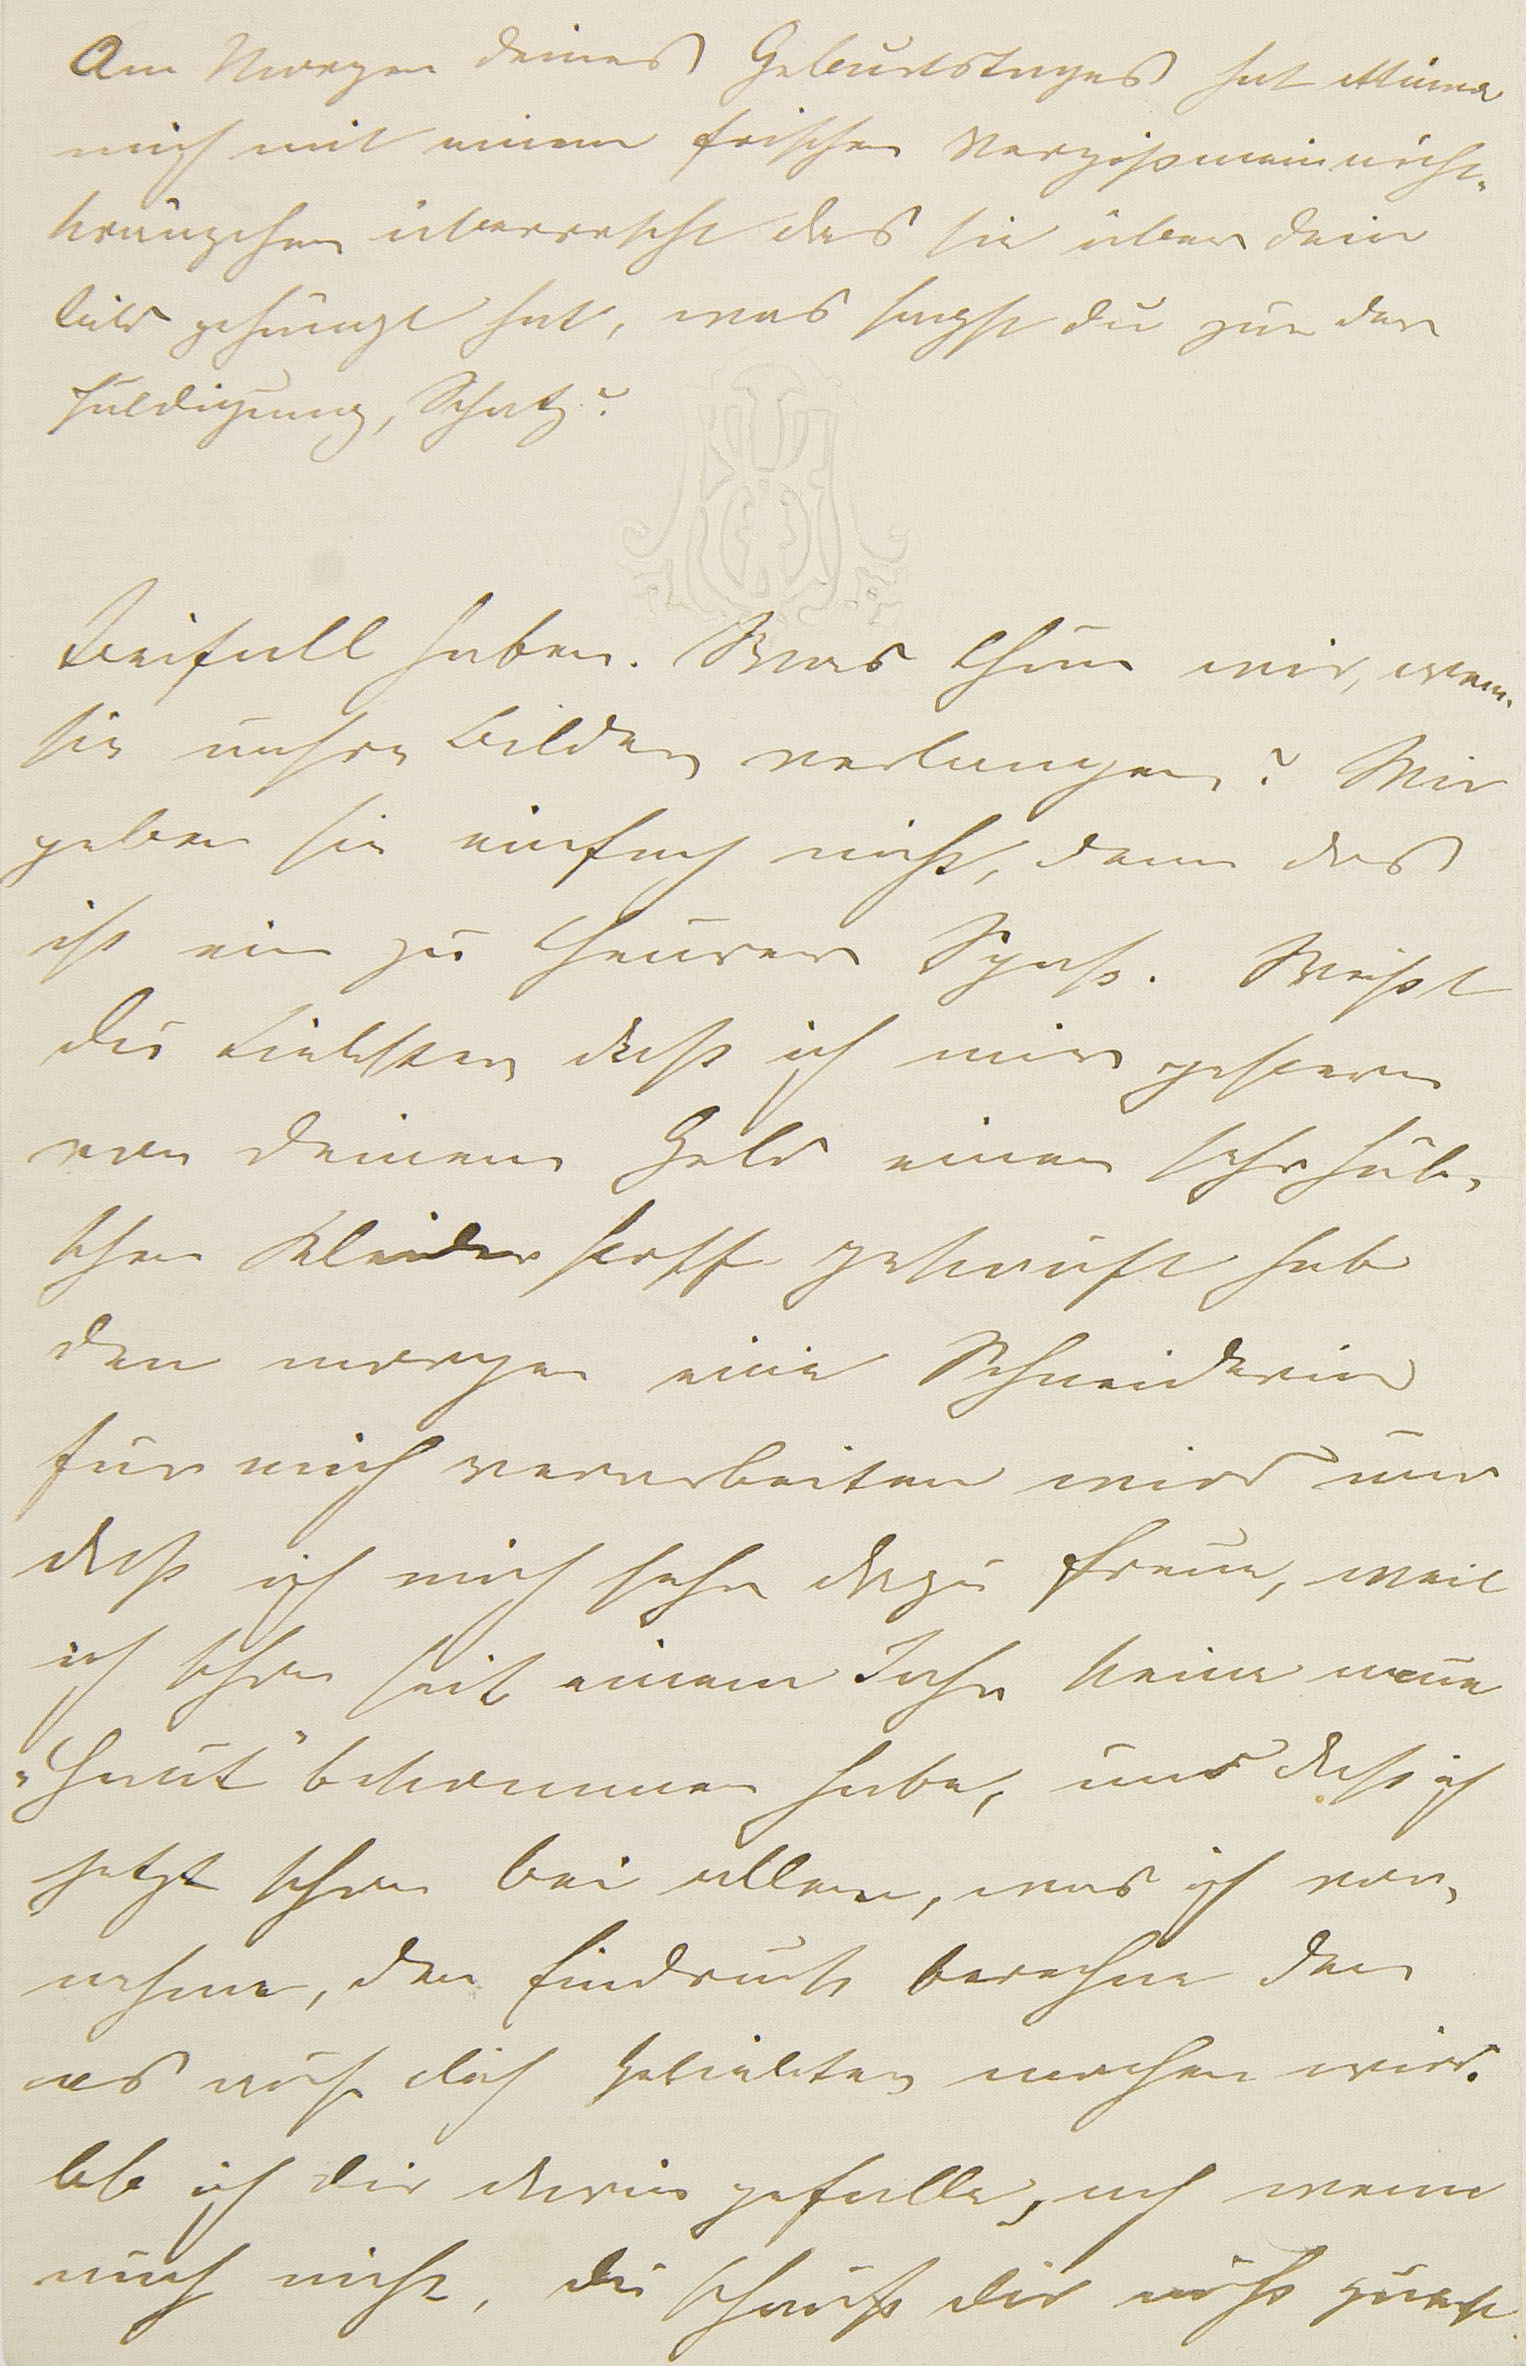 Am Morgen deines Geburtstages hat Minna
mich mit einem frischen Vergißmeinnicht-
kränzchen überrascht das sie über dein
Bild gehängt hat, was sagst du zu der
Huldigung, Schatz?
Beifall haben. Was thun wir, wenn
sie unsre Bilder verlangen? Wir
geben sie einfach nicht, denn das
ist ein zu theurer Spaß. Weißt
du Liebster daß ich mir gestern
von deinem Geld einen sehr hüb-
schen Kleiderstoff gekauft hab
den morgen eine Schneiderin
für mich verarbeiten wird und
daß ich mich sehr dazu freue, weil
ich schon seit einem Jahr keine neue
„Haut" bekommen habe, und daß ich
jetzt schon bei allem, was ich vor-
nehme, den Eindruck berechne den
es auf dich Geliebter machen wird.
Ob ich dir darin gefalle, ach wenn
auch nicht, du schaust dir nicht zuerst